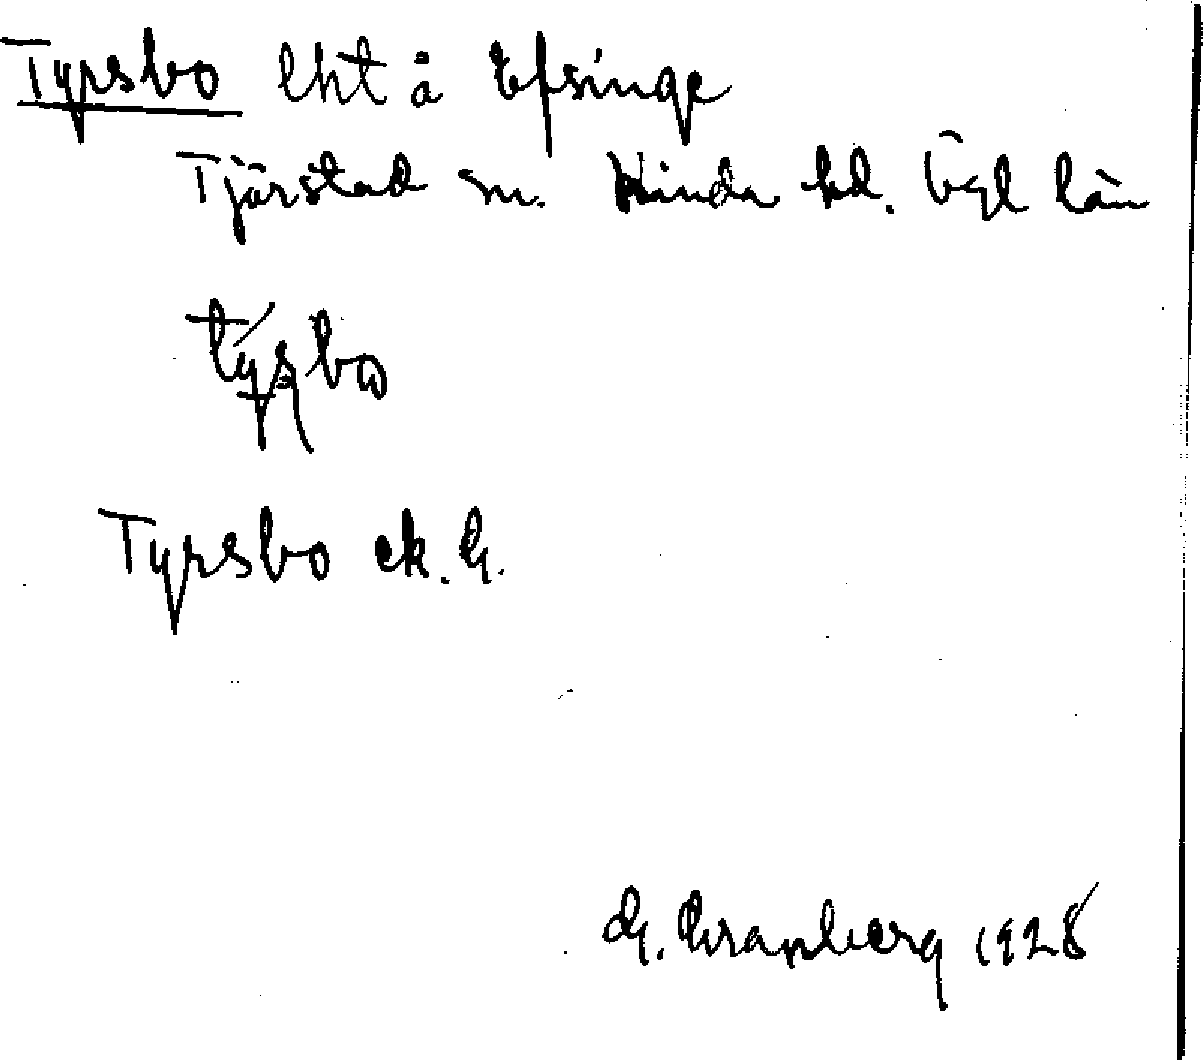 Tyrsbo lht å Efsinge
Tjärstad sn. Kinda hd. Ögl län
Tyrsbo ek. G.
G. Granberg 1928